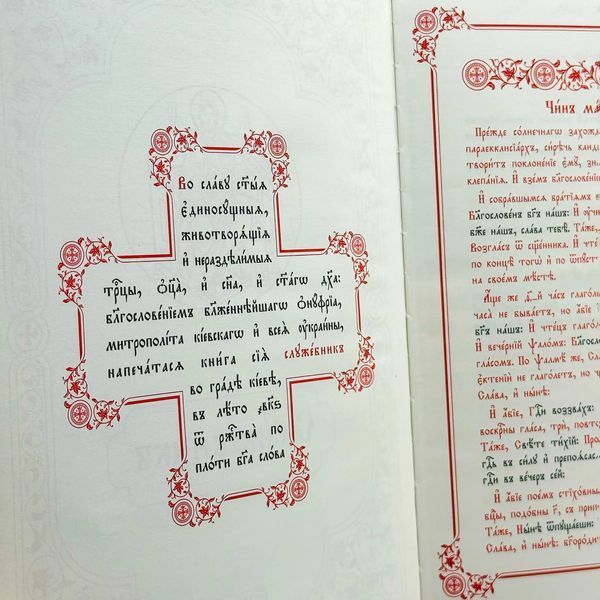 Во сла́вꙋ ст҃ы́ѧ
є҆диносꙋ́щныѧ,
животворѧ́щїѧ
и҆ нераздѣ́лимыѧ
трⷪ҇цы, ѻ҆ц҃а̀, и҆ сн҃а, и҆ ст҃а́гѡ дх҃а:
бл҃гослове́нїемъ бл҃же́ннѣйшагѡ ѻ҆нꙋ́фрїа,
митрополі́та кі́евскагѡ и҆ всеѧ̀ ᲂу҆краи́ны,
напеча́тасѧ кни́га сїѧ̀ слꙋже́бникъ
во гра́дѣ кі́евѣ,
въ лѣ́то ҂вк҃ѕ
ѿ ржⷭ҇тва̀ по
пло́ти бг҃а сло́ва
Чи́нъ
Пре́жде со́лнечнагѡ
параеккласїа́рхъ, си́рѣчь
твори́тъ поклоне́нїе є҆мꙋ̀,
клепа́нїѧ. И҆ взе́мъ
И҆ собра́вшымсѧ бра́тїѧмъ
Благослове́нъ бг҃ъ на́шъ:
бж҃е на́шъ, сла́ва тебѣ̀. Та́же,
Возгла́съ ѿ сщ҃е́нника. И҆
по концѣ̀ тогѡ̀ и҆ ѿпꙋ́стъ
на свое́мъ мѣ́стѣ.
А҆́ще же ча́съ
часа̀ не быва́етъ, но а҆́бїе
бг҃ъ на́шъ: И҆ чте́цъ
И҆ вече́рнїй ѱало́мъ:
гла́сомъ. По ѱалмѣ́ же,
є҆ктенїй не глаго́летъ, но
Сла́ва, и҆ ны́нѣ:
И҆ а҆́бїе, Гдⷭ҇и воззва́хъ:
воскрⷭ҇ны гла́са, трѝ,
Та́же, Свѣ́те ти́хїй:
гдⷭ҇ь въ си́лꙋ и҆
гдⷭ҇и въ ве́черъ се́й:
И҆ а҆́бїе пое́мъ
бцы, подо́бны г҃, съ
Та́же, Ны́нѣ ѿпꙋща́еши:
Сла́ва, и҆ ны́нѣ: